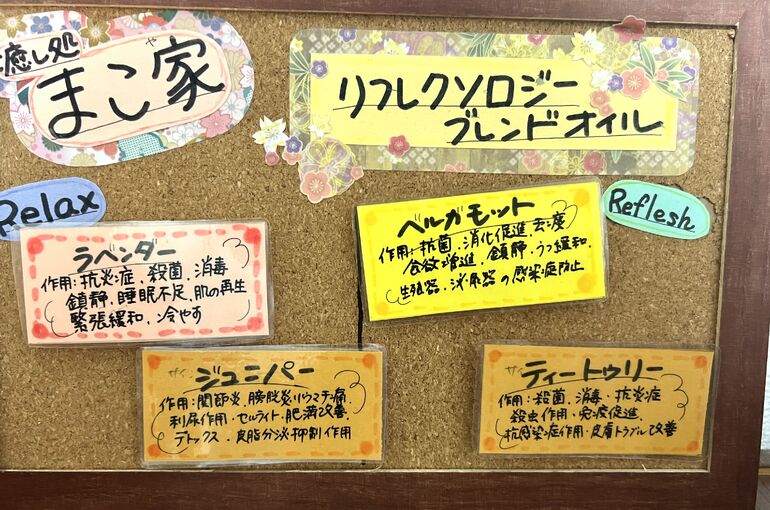 癒し処
まこ家
や
リフレクソロジー
ブレンドオイル
Relax
Reflesh
ラベンダー
作用:抗炎症、殺菌、消毒
鎮静、睡眠不足、肌の再生
緊張緩和、冷やす
ベルガモット
作用:抗菌、消化促進、去痰
食欲増進、鎮静、うつ緩和、
生殖器、泌尿器の感染症防止
ジュニパー
作用:関節炎、膀胱炎、リウマチ、痛
利尿作用・セルライト・肥満改善、
デトックス、皮脂分泌抑制作用
ティートゥリー
作用:殺菌、消毒・抗炎症
殺虫作用・免疫促進、
抗感染症作用・皮膚トラブル改善